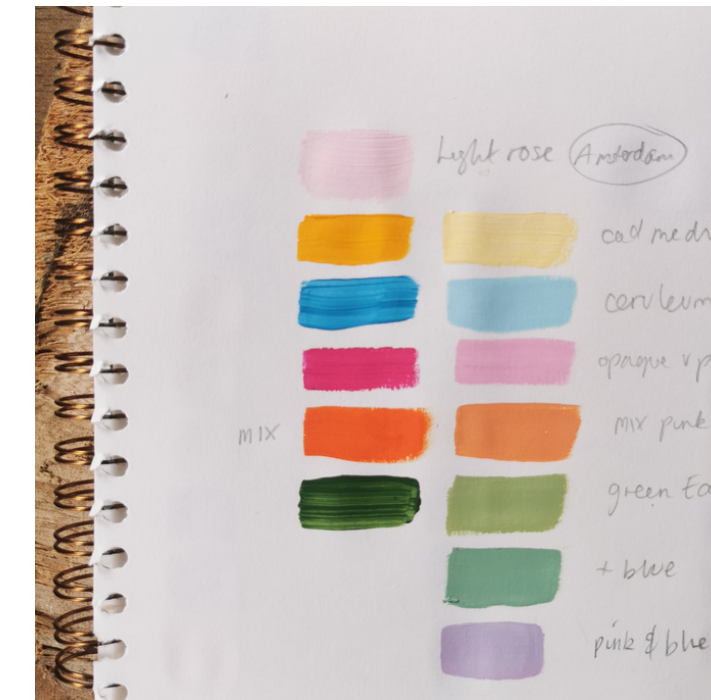 Light rose Amsterdam
cad med
ceruleum
opaque v p
MIX mix pink
green Ea
+ blue
pink & blue